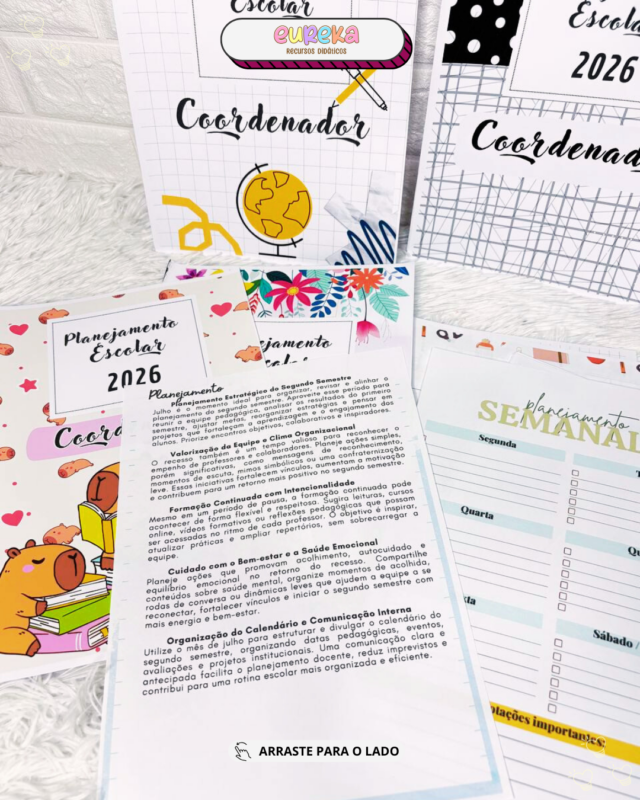 Escolar
eureka
RECURSOS DIDÁTICOS
Coordenador
Escolar
2026
Coordenad
Planejamento
Escolar
2026
Coord
ejamento
Planejamento
Planejamento Estratégico do Segundo Semestre
Julho é o momento ideal para organizar, revisar e alinhar o
planejamento do segundo semestre. Aproveite esse período para
reunir a equipe pedagógica, analisar os resultados do primeiro
semestre, ajustar metas, reorganizar estratégias e pensar em
projetos que fortaleçam a aprendizagem e o engajamento dos
alunos. Priorize encontros objetivos, colaborativos e inspiradores.
Valorização da Equipe e Clima Organizacional
O recesso também é um tempo valioso para reconhecer o
empenho de professores e colaboradores. Planeje ações simples,
porém significativas, como mensagens de reconhecimento,
momentos de escuta, mimos simbólicos ou uma confraternização
leve. Essas iniciativas fortalecem vínculos, aumentam a motivação
e contribuem para um retorno mais positivo no segundo semestre.
Formação Continuada com Intencionalidade
Mesmo em um período de pausa, a formação continuada pode
acontecer de forma flexível e respeitosa. Sugira leituras, cursos
online, vídeos formativos ou reflexões pedagógicas que possam
ser acessadas no ritmo de cada professor. O objetivo é inspirar,
atualizar práticas e ampliar repertórios, sem sobrecarregar a
equipe.
Cuidado com o Bem-estar e a Saúde Emocional
Planeje ações que promovam acolhimento, autocuidado e
equilíbrio emocional no retorno do recesso. Compartilhe
conteúdos sobre saúde mental, organize momentos de acolhida,
rodas de conversa ou dinâmicas leves que ajudem a equipe a se
reconectar, fortalecer vínculos e iniciar o segundo semestre com
mais energia e bem-estar.
Organização do Calendário e Comunicação Interna
Utilize o mês de julho para estruturar e divulgar o calendário do
segundo semestre, organizando datas pedagógicas, eventos,
avaliações e projetos institucionais. Uma comunicação clara e
antecipada facilita o planejamento docente, reduz imprevistos e
contribui para uma rotina escolar mais organizada e eficiente.
planejamento
SEMANAL
Segunda
T
Quarta
Qu
xta
Sábado /
otações importantes:
ARRASTE PARA O LADO